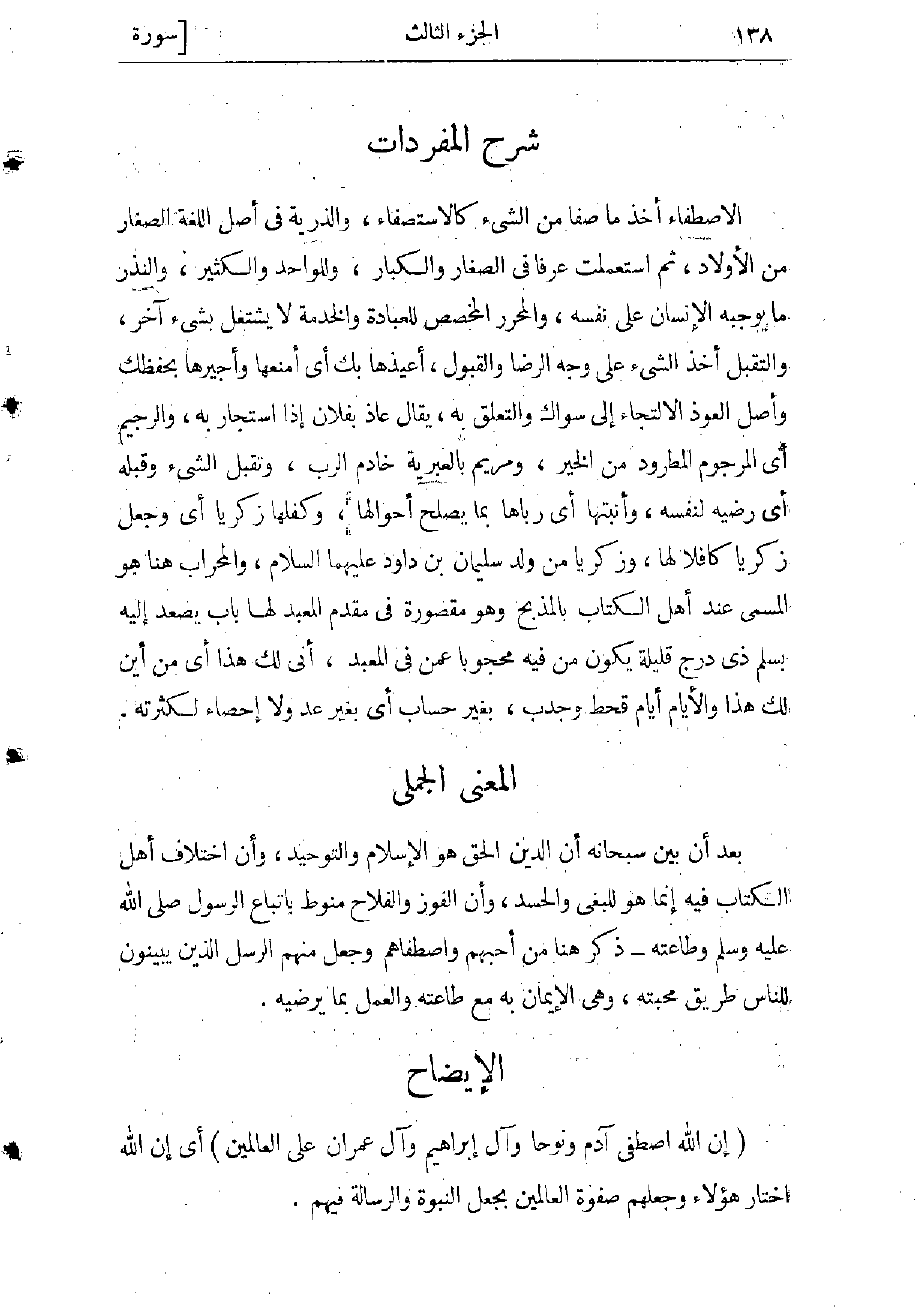 ١٣٨ الجزء الثالث [سورة
شرح المفردات
الاصطفاء أخذ ما صفا من الشىء كالاستصفاء ، والذرية فى أصل اللغة الصغار
من الأولاد ، ثم استعملت عرفا فى الصغار والكبار ، وللواحد والكثير ، والنذر
ما يوجبه الإنسان على نفسه ، والمحرر المخصص للعبادة والخدمة لا يشتغل بشىء آخر ،
والتقبل أخذ الشىء على وجه الرضا والقبول ، أعيذها بك أى أمنعها وأجيرها بحفظك
وأصل العوذ الالتجاء إلى سواك والتعلق به ، يقال عاذ بفلان إذا استجار به ، والرجيم
أى المرجوم المطرود من الخير ، ومريم بالعبرية خادم الرب ، وتقبل الشىء وقبله
أى رضيه لنفسه ، وأنبتها أى رباها بما يصلح أحوالها ، وكفلها زكريا أى وجعل
زكريا كافلا لها ، وزكريا من ولد سليمان بن داود عليهما السلام ، والمحراب هنا هو
المسمى عند أهل الكتاب بالمذبح وهو مقصورة فى مقدم المعبد لها باب يصعد إليه
بسلم ذى درج قليلة يكون من فيه محجوبا عمن فى المعبد ، أنى لك هذا أى من أين
لك هذا والأيام أيام قحط وجدب ، بغير حساب أى بغير عد ولا إحصاء لكثرته .
المعنى الجملى
بعد أن بين سبحانه أن الدين الحق هو الإسلام والتوحيد ، وأن اختلاف أهل
الكتاب فيه إنما هو للبغى والحسد ، وأن الفوز والفلاح منوط باتباع الرسول صلى الله
عليه وسلم وطاعته – ذكر هنا من أحبهم واصطفاهم وجعل منهم الرسل الذين يبينون
للناس طريق محبته ، وهى الإيمان به مع طاعته والعمل بما يرضيه .
الإيضاح
( إن الله اصطفى آدم ونوحا وآل إبراهيم وآل عمران على العالمين ) أى إن الله
اختار هؤلاء وجعلهم صفوة العالمين بجعل النبوة والرسالة فيهم .